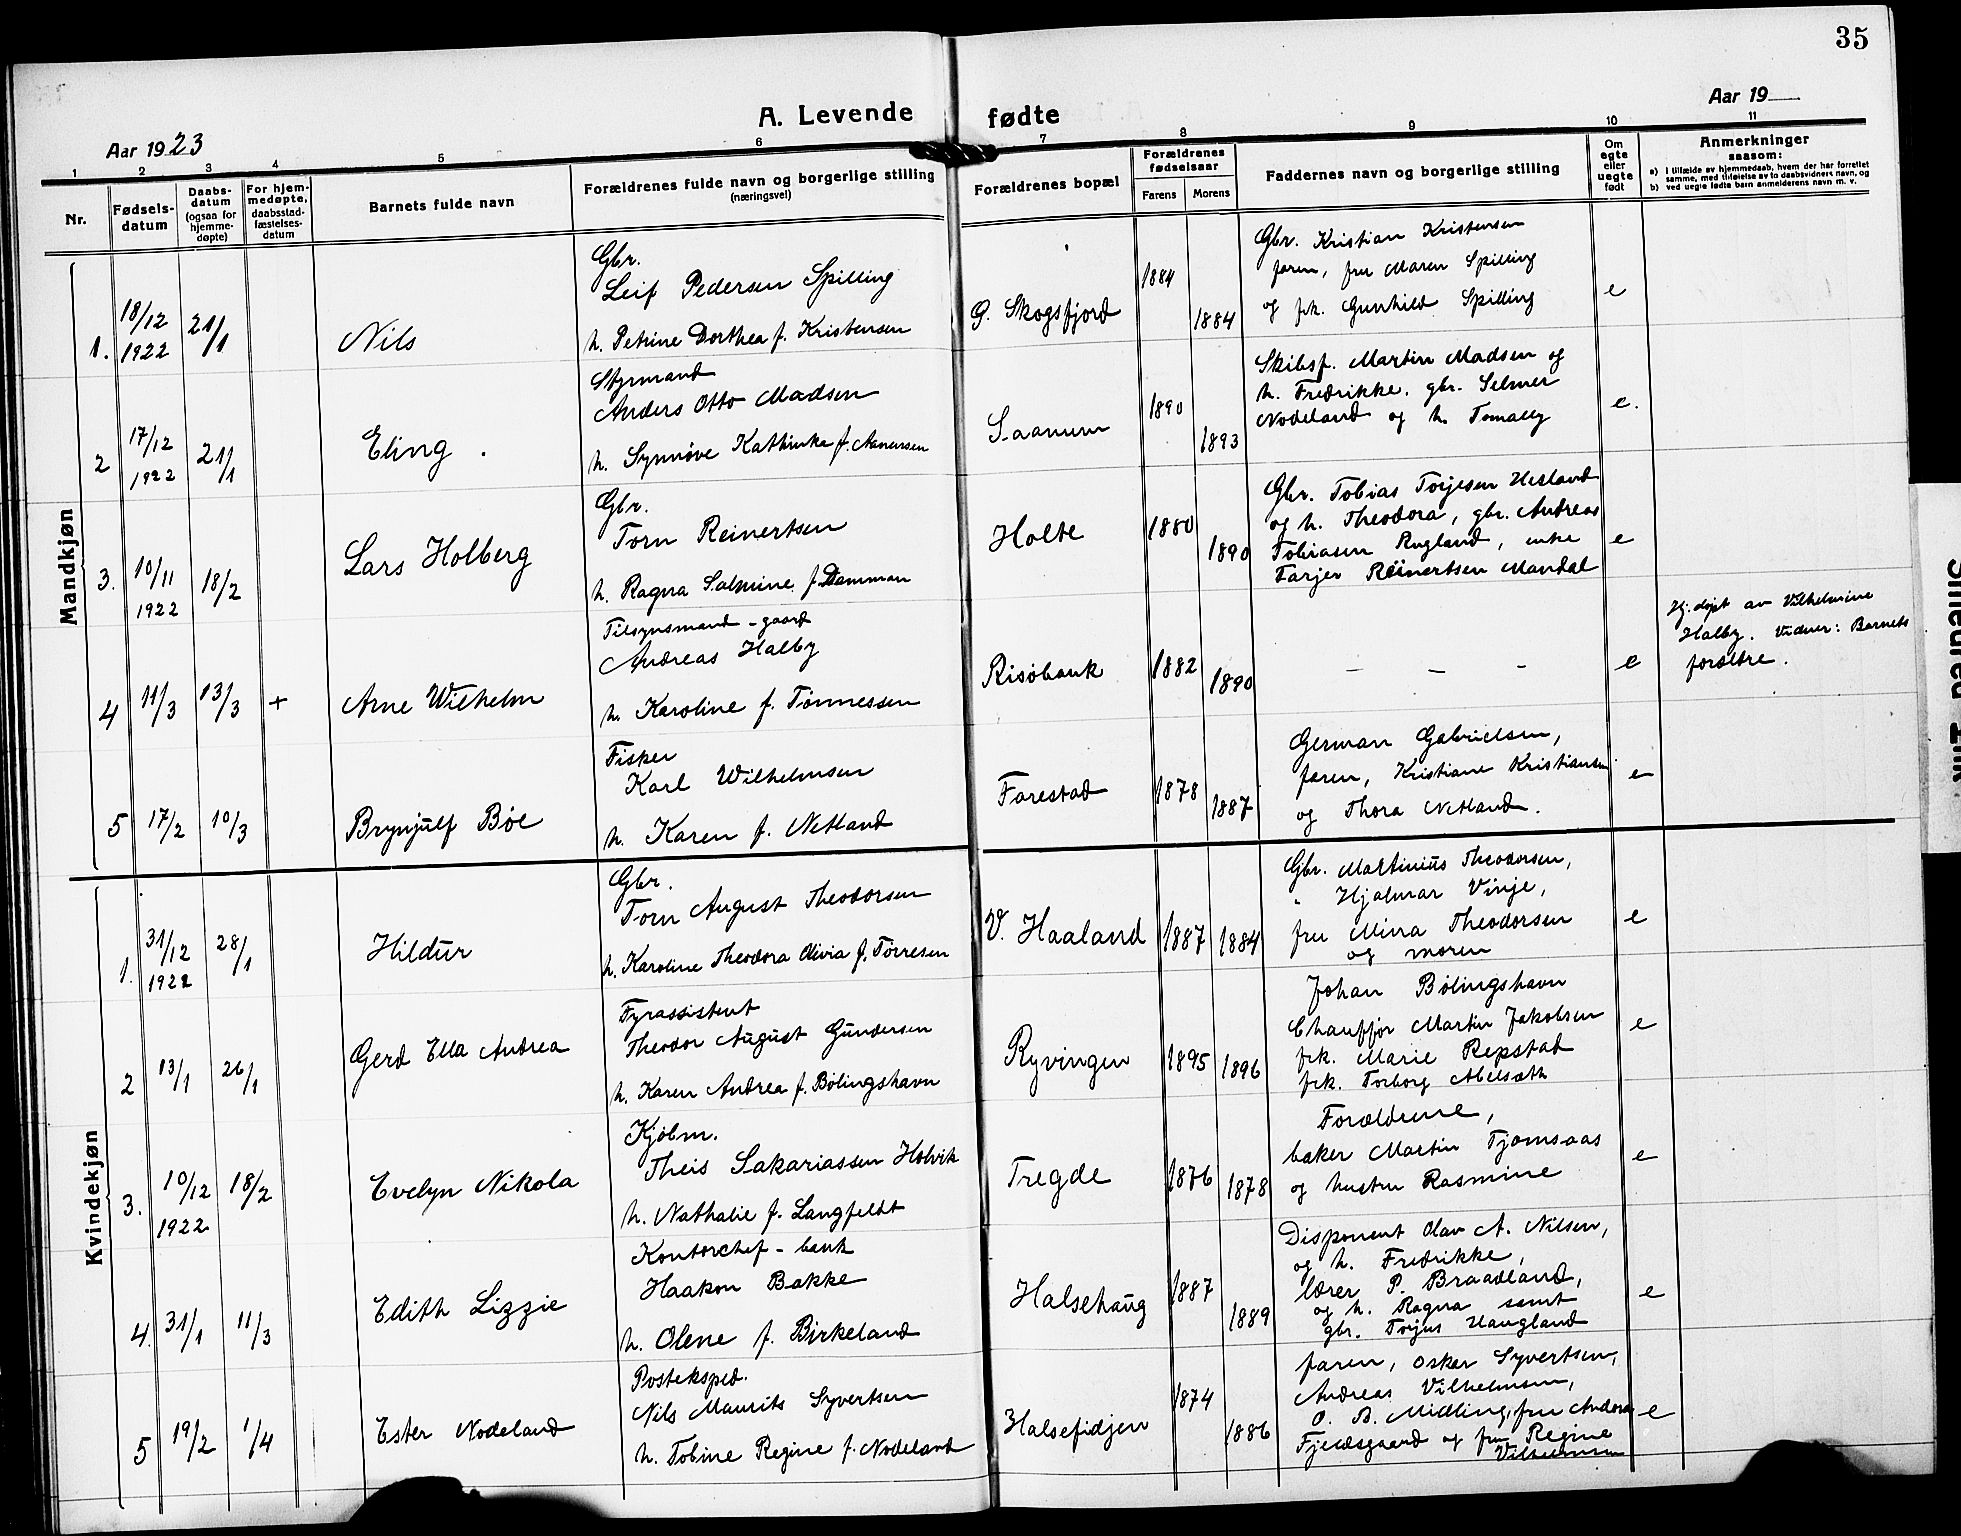 35
A. Levende fødte
Aar 1923
Aar 19
1 2 3 4 5 6 7 8 9 10 11
Nr.
Fødsels-
datum
Daabs-
datum
(ogsaa for
hjemme-
døpte)
For hjem-
medøpte,
daabsstad-
fæstelses-
datum
Barnets fulde navn
Forældrenes fulde navn og borgerlige stilling
(næringsvei)
Forældrenes bopæl
Forældrenes
fødselsaar
Farens
Morens
Faddernes navn og borgerlige stilling
Om
egte
eller
uegte
født
Anmerkninger
saasom:
a) I tilfælde av hjemmedaab, hvem der har forrettet
samme, med tilføielse av to daabsvidners navn, og
b) ved uegte fødte barn anmelderens navn m. v.
Mandkjøn
1. 18/12 1922 21/1
Nils
Gbr.
Leif Pedersen Spilling
h. Petrine Dorthea f. Kristensen
G. Skogsfjord
1884
1884
Gbr. Kristian Kristensen
faren, fru Maren Spilling
og frk. Gunhild Spilling
e
2 17/12 1922 21/1
Eling.
Styrmand
Anders Otto Madsen
h. Synnøve Kathinka f. Aanensen
Saanum
1890
1893
Skibsf. Martin Madsen og
h. Fredrikke, gbr. Selmer
Nodeland og h. Tomally
e.
3. 10/11 1922 18/2
Lars Holberg
Gbr.
Torn Reinertsen
h. Ragna Salmine f. Damman
Holte
1880
1890
Gbr. Tobias Torjesen Hesland
og h. Theodora, gbr. Andreas
Tobiasen Rugland, enke
Tarjer Reinertsen Mandal
e
4 11/3 13/3 +
Arne Wilhelm
Tilsynsmand - gaard
Andreas Halby
h. Karoline f. Tønnessen
Risøbank
1882
1890
- - -
e
Hj.døpt av Vilhelmine
Halby. Vidner: Barnets
forældre.
5 17/2 10/3
Brynjulf Bøe
Fisker
Karl Wilhelmsen
h. Karen f. Netland
Farestad
1878
1887
German Gabrielsen,
faren, Kristiane Kristiansen
og Thora Netland.
e
Kvindekjøn
1. 31/12 1922 28/1
Hildur
Gbr.
Torn August Theodorsen
h. Karoline Theodora Olivia f. Tørresen
V. Haaland
1887
1884
Gbr. Martinius Theodorsen,
" Hjalmar Vinje,
fru Mina Theodorsen
og moren
e
2 13/1 26/1
Gerd Ella Andrea
Fyrassistent
Theodor August Gundersen
h. Karen Andrea f. Bølingshavn
Ryvingen
1895
1896
Johan Bølingshavn
Chauffør Martin Jakobsen
frk. Marie Repstad
frk. Torborg Abelsæth
e
3. 10/12 1922 18/2
Evelyn Nikola
Kjøbm.
Theis Sakariassen Holvik
h. Nathalie f. Langfeldt
Tregde
1876
1878
Forældrene,
baker Martin Tjomsaas
og hustru Rasmine
e
4. 31/1 11/3
Edith Lizzie
Kontorchef - bank
Haakon Bakke
h. Olene f. Birkeland
Halsehaug
1887
1889
Disponent Olav A. Nilsen,
og h. Fredrikke,
lærer P. Braadland,
og h. Ragna samt
gbr. Torjus Haugland
e
5 19/2 1/4
Ester Nodeland
Postekspd.
Nils Maurits Syvertsen
h. Tobine Regine f. Nodeland
Halsefidjen
1874
1886
faren, Oskar Syvertsen,
Andreas Vilhelmsen,
O. B. Midling, fru Andora
Fjeldsgaard og fru Regine
Vilhelmsen
e